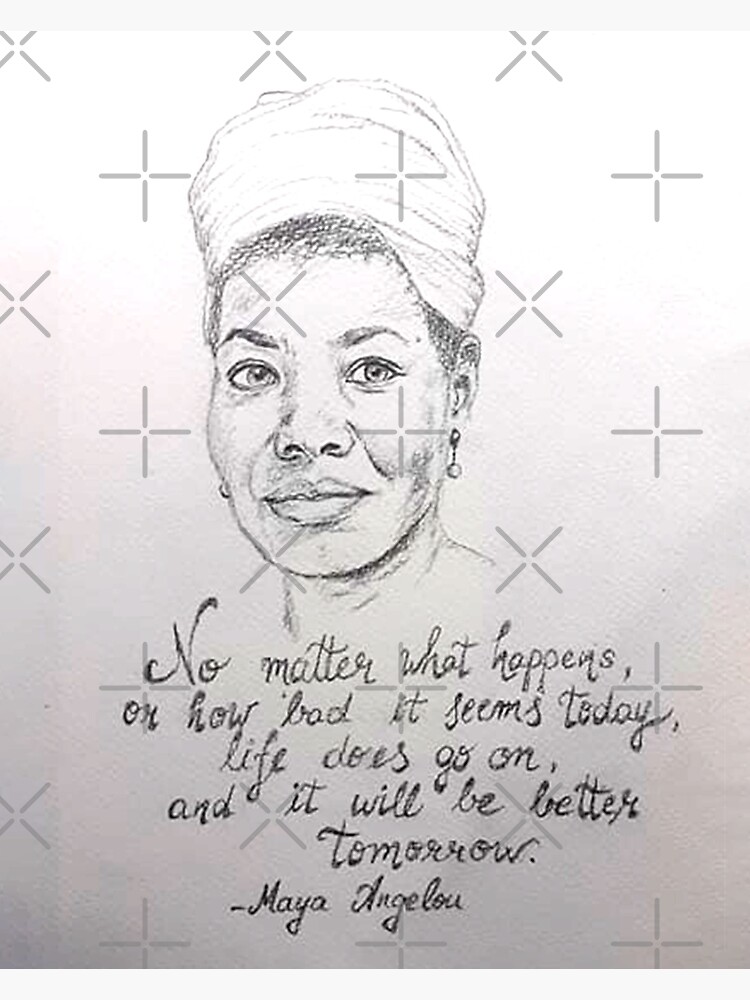 No matter what happens,
or how bad it seems today,
life does go on,
and it will be better
tomorrow.
-Maya Angelou